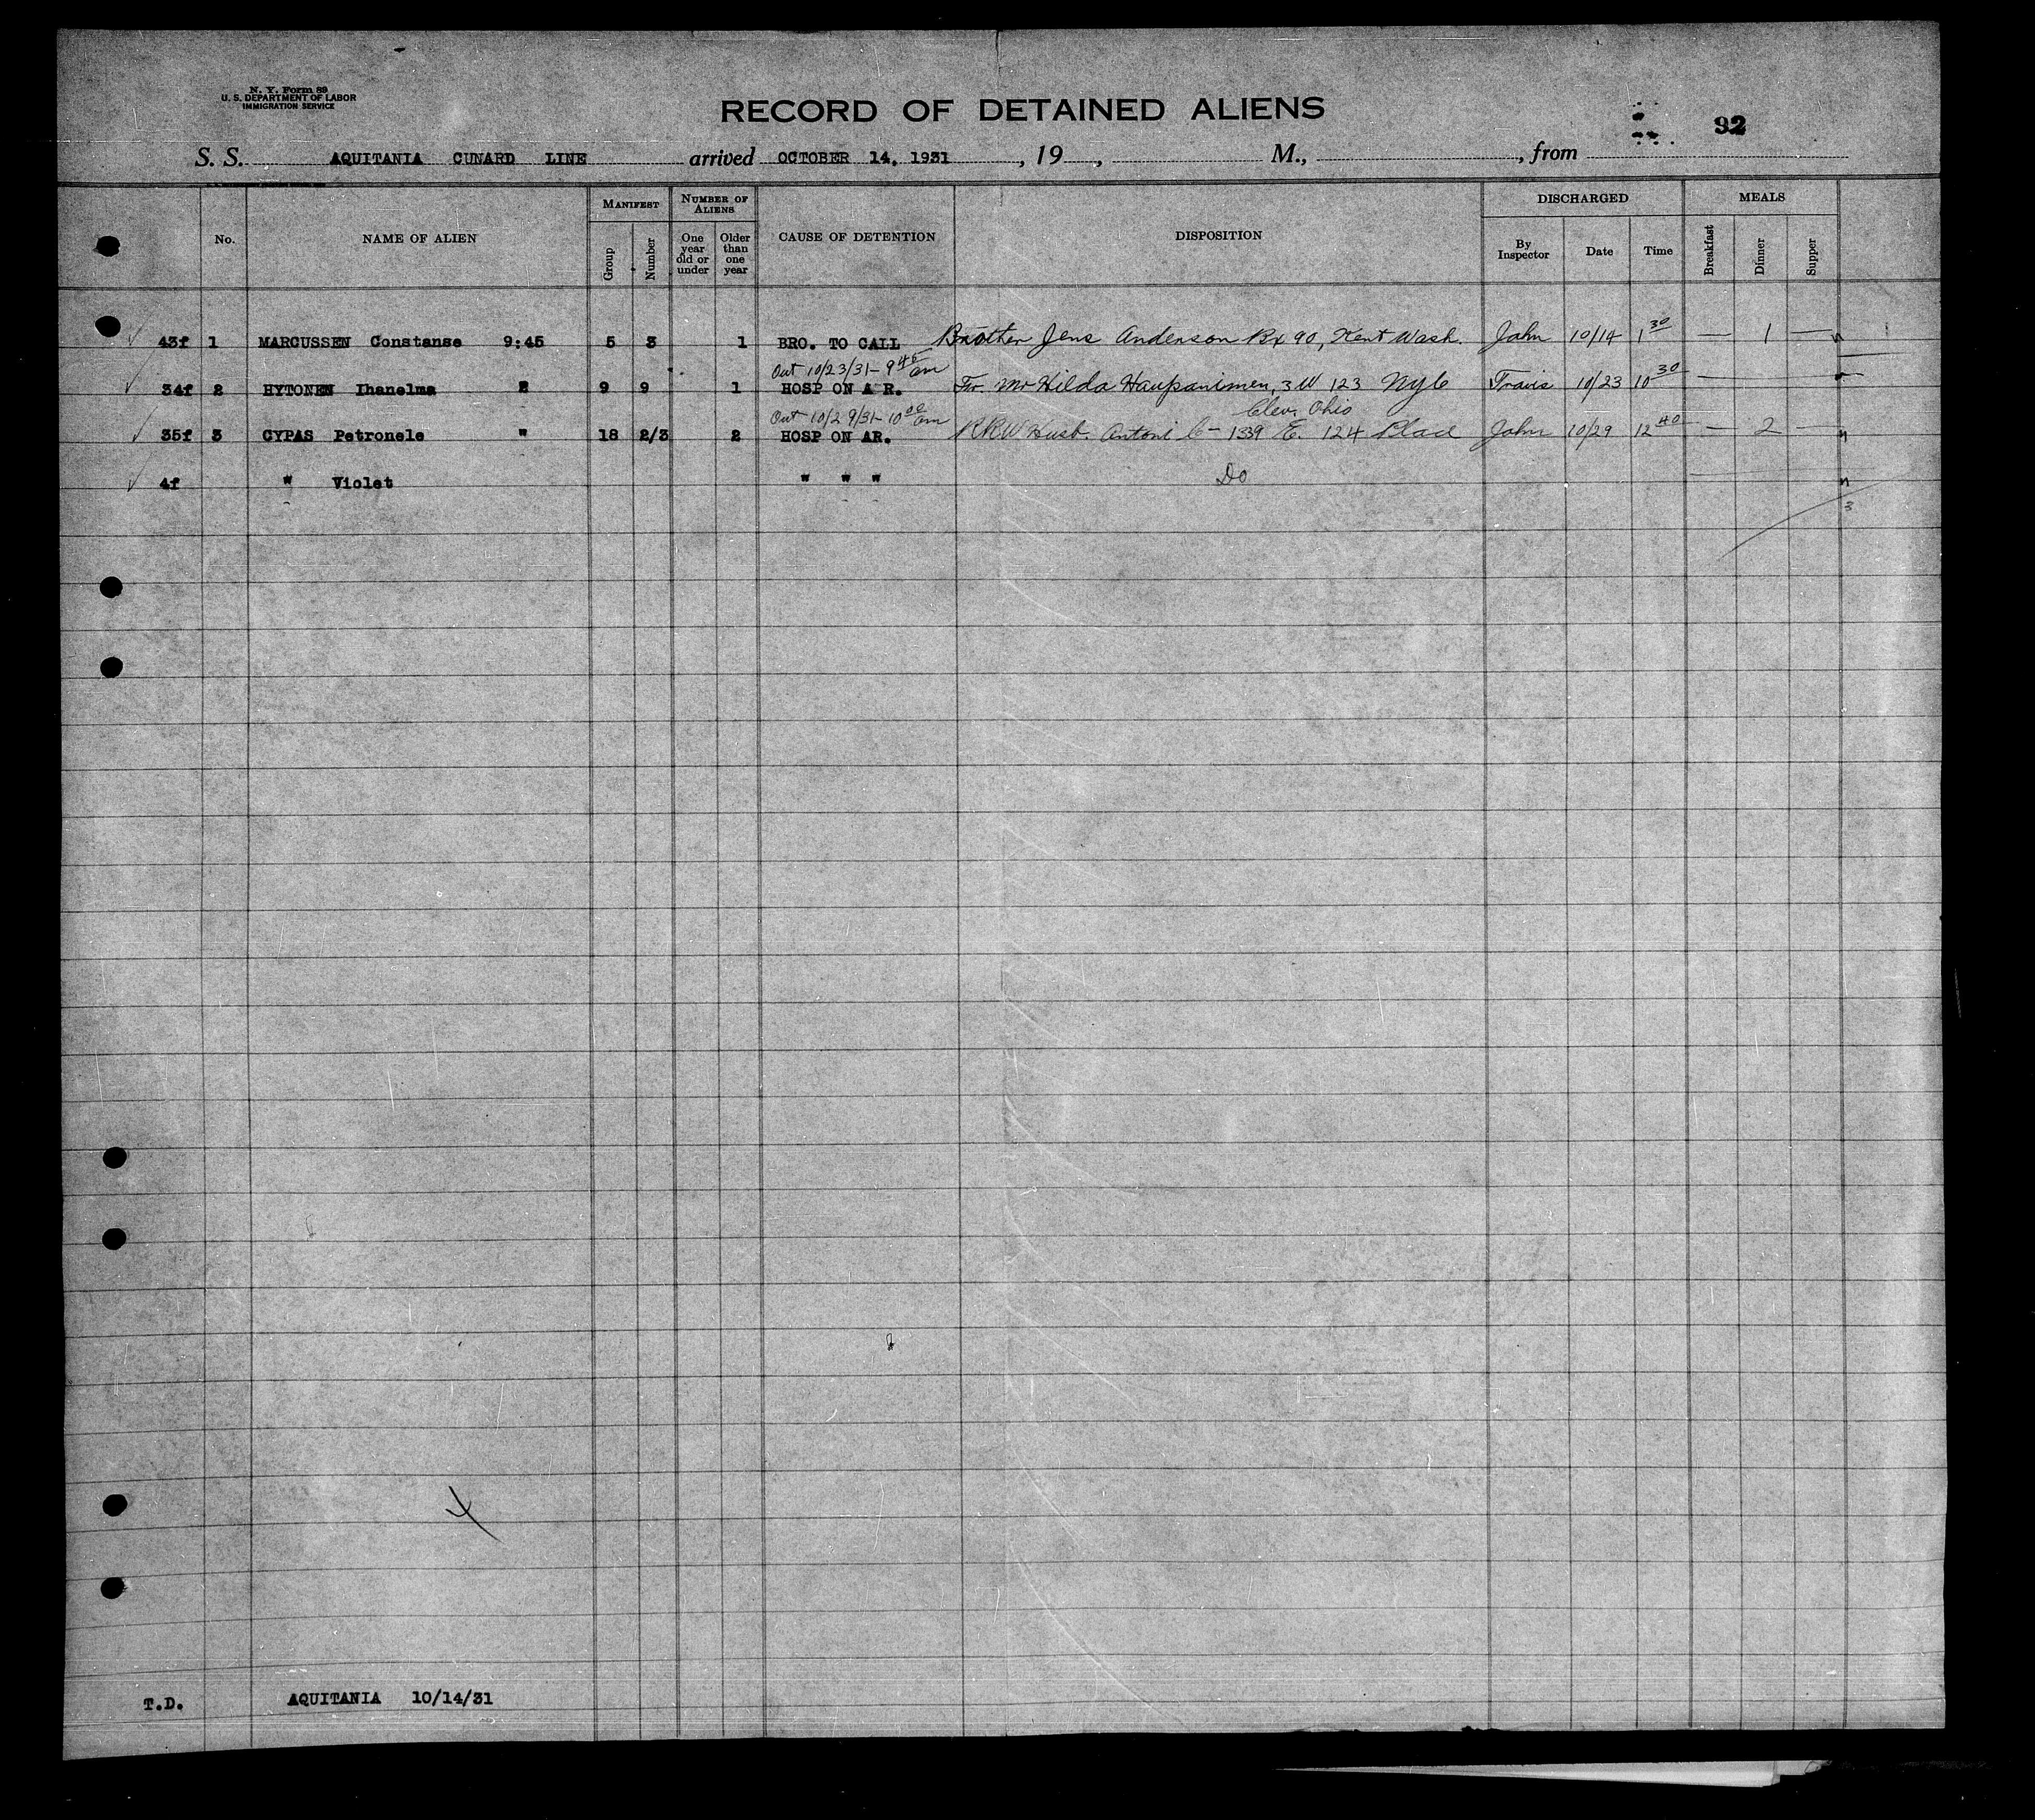 N. Y. Form 89
U. S. DEPARTMENT OF LABOR
IMMIGRATION SERVICE
RECORD OF DETAINED ALIENS
92
S. S. AQUITANIA CUNARD LINE arrived OCTOBER 14, 1931, 19 , M., , from
No. NAME OF ALIEN MANIFEST Group Number NUMBER OF ALIENS One year old or under Older than one year CAUSE OF DETENTION DISPOSITION DISCHARGED By Inspector Date Time MEALS Breakfast Dinner Supper
43f 1 MARCUSSEN Constanse 9:45 5 3 1 BRO. TO CALL Brother Jens Anderson Bx 90, Kent Wash. John 10/14 1 30 — 1 —
Out 10/23/31 - 9 45 am
34f 2 HYTONEN Ihanelma " 9 9 1 HOSP ON A R. Fr. Mr Hilda 3 W 123 NYC Travis 10/23 10 30
Out 10/29/31 - 10 00 am Clev. Ohio
35f 3 CYPAS Petronele " 18 2/3 2 HOSP ON AR. RRW Husb. Antoni C - 1339 E. 124 Place John 10/29 12 40 — 2 —
4f " Violet " " " Do
3
T.D. AQUITANIA 10/14/31